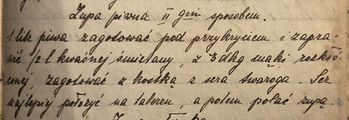 Zupa piwna II gim sposobem.
1 litr piwa zagotować pod przykryciem i zapra-
wić ½ l kwaśnej śmietany, z 3 dkg mąki rozkłó-
conej, zagotować z kostką z sera twaroga. Ser
najlepiej położyć na talerzu, a potem polać zupą.